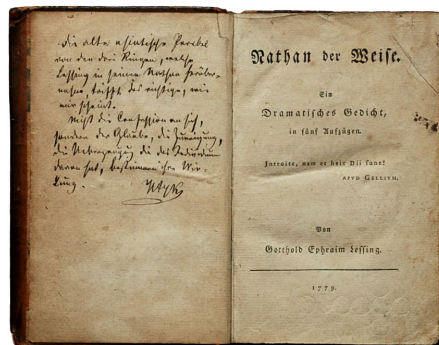 Die alte asiatische Parabel
von den drei Ringen, welche
Lessing in seinen Nathan herüber-
nahm, trifft das richtige, wie
mir scheint.
Nicht die Confession an sich,
sondern der Glaube, die Zuneigung,
die Ueberzeugung die das Individuum
daran hat, bestimmen ihre Wir-
kung.
Nathan der Weise.
Ein
Dramatisches Gedicht,
in fünf Aufzügen.
Introite, nam et heic Dii sunt!
APVD GELLIVM.
Von
Gotthold Ephraim Lessing.
1779.